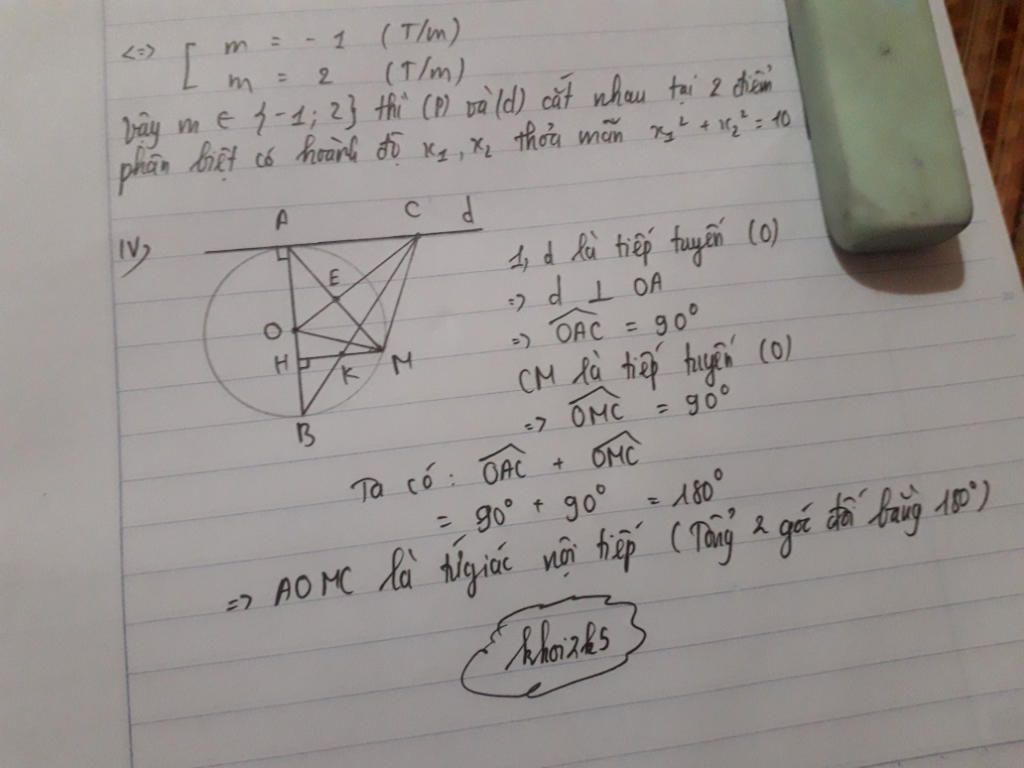 <=> [ m = - 1 (T/m)
m = 2 (T/m)
vậy m ∈ {-1; 2} thì (P) và (d) cắt nhau tại 2 điểm
phân biệt có hoành độ x₁, x₂ thỏa mãn x₁² + x₂² = 10
IV)
A C d
E
O
H K M
B
1, d là tiếp tuyến (O)
=> d ⊥ OA
=> \widehat{OAC} = 90°
CM là tiếp tuyến (O)
=> \widehat{OMC} = 90°
Ta có: \widehat{OAC} + \widehat{OMC}
= 90° + 90° = 180°
=> AOMC là tứ giác nội tiếp (Tổng 2 góc đối bằng 180°)
khoi2k5